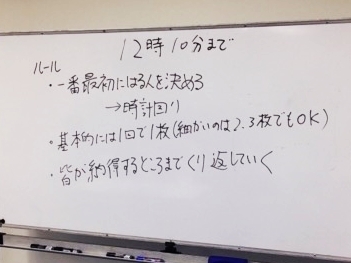 12時10分まで
ルール
・一番最初にはる人を決める
→時計回り
・基本的には1回で1枚(細かいのは2.3枚でもOK)
・皆が納得するところまでくり返していく